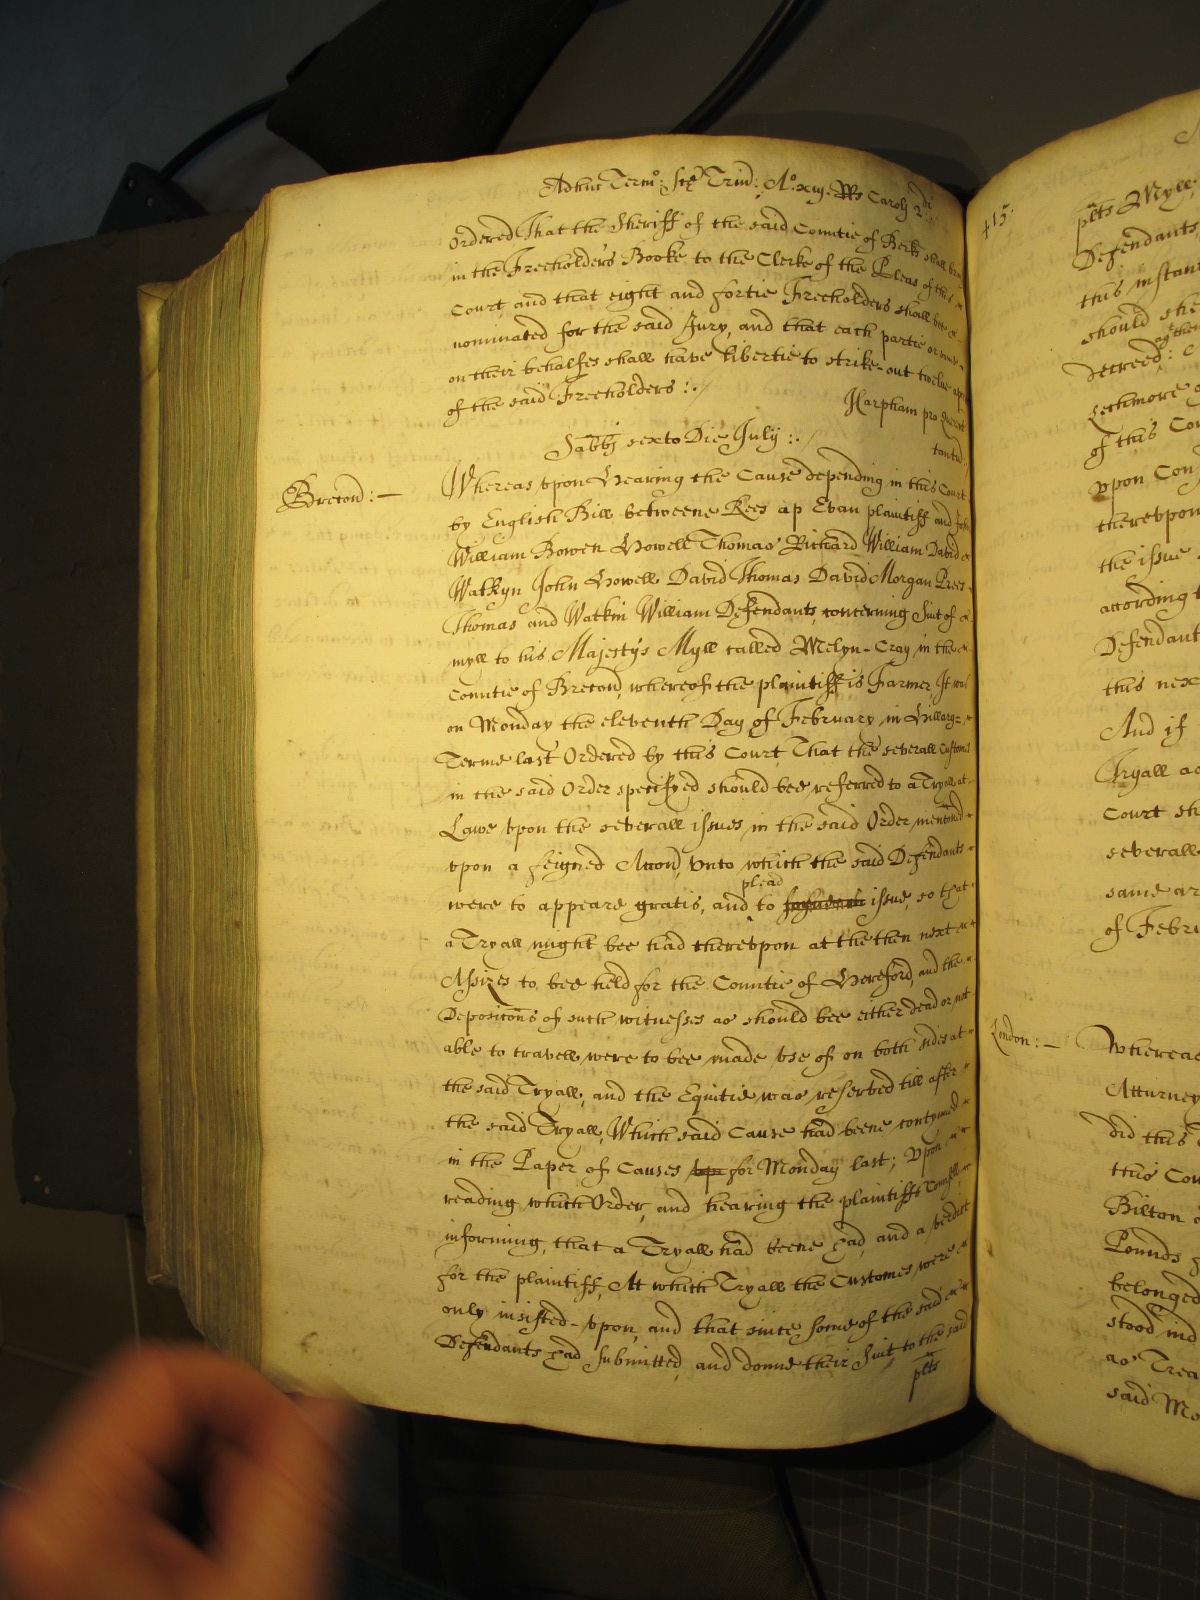 Adhuc Term: Ste Trin: Ao. xiij. Rs Caroli 2di
ordered That the Sheriff of the said Countie of Berks shall bring
in the Freeholders Booke to the Clerke of the Pleas of this
Court and that eight and fortie Freeholders shall bee
nominated for the said Jury, and that each partie or some
on their behalfes shall have libertie to strike-out twelve apeece
of the said Freeholders :./
Harpham pro
tantu:
Sabbi sexto Die July :./
Brecon :—
Whereas vpon Hearing the Cause depending in this Court
by English Bill betweene Rees ap Evan plaintiff and John
William Bowen Howell Thomas Richard William David
Watkyn John Howell David Thomas David Morgan Prees
Thomas and Watkin William Defendants, concerning Suit of
myll to his Majestys Myll called Melyn-Cray in the
Countie of Brecon, whereof the plaintiff is Farmer It was
on Monday the eleventh Day of February in Hillary=
Terme last Ordered by this Court That the severall Customes
in the said Order specifyed should bee referred to a Tryall at
Lawe vpon the severall issues in the said Order menconed
vpon a feigned Accon, vnto which the said Defendants
plead
were to appeare gratis, and to issue, so that
a Tryall might bee had therevpon at the then next
Assizes to bee held for the Countie of Hereford, and the
Deposicons of such witnesses as should bee either dead or not
able to travell were to bee made vse of on both sides at
the said Tryall, and the Equitie was reserved till after
the said Tryall, Which said Cause had beene contynued
in the Paper of Causes vpo for Monday last; Vpon
reading which Order, and hearing the plaintiffs Councell
informing, that a Tryall had beene had, and a verdict
for the plaintiff, At which Tryall the Customes were
only insisted-vpon, and that since some of the said
Defendants had submitted, and donne their Suit to the said
plts
415.
plts Myll
Defendants
this instant
should she
ag the
decreed: 
Lechmore
of this Cou
vpon Con
therevpon
the issue
according t
Defendant
this nex
And if
Tryall
Court sh
severall
same ar
of Febru
London : —
Whereas
Atturney
did this
this Cou
Bilton
Pounds
belonged
stood ind
as Trea
said Mo